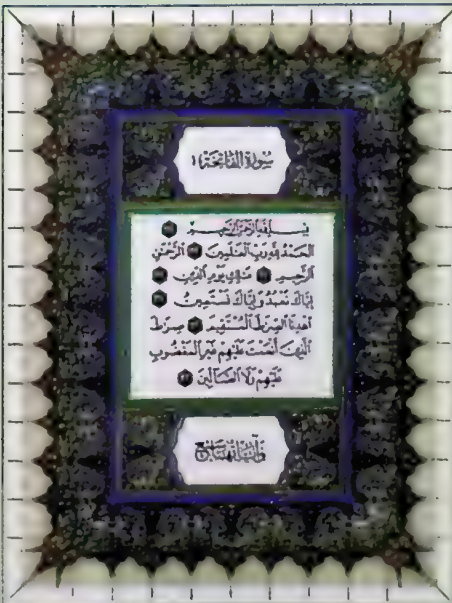 سورة الفاتحة ١
بسم الله الرحمن الرحيم
الحمد لله رب العلمين الرحمن
الرحيم ملك يوم الدين
إياك نعبد وإياك نستعين
اهدنا الصرط المستقيم صرط
الذين أنعمت عليهم غير المغضوب
عليهم ولا الضالين
وآياتها سبع